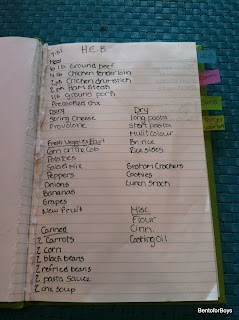 H.E.B.
Meat
6 lb Ground beef
4 lb Chicken tenderloin
2 pk Chicken drumstick
2 pk Ham steaks
1 lb Ground pork
Precooked chx
Dairy
String Cheese
Provolone
Fresh Veggies/Fruit
Corn on the Cob
Potatoes
Salad Mix
Peppers
Onions
Bananas
Grapes
New Fruit
Canned
2 Carrots
2 Corn
2 black beans
2 refried beans
2 pasta sauce
2 chx soup
Dry
long pasta
short pasta
Multi colour
Bn rice
Rice sides
Graham Crackers
Cookies
Lunch Snack
Misc.
Flour
Cinn.
Cooking Oil
BentoforBoys